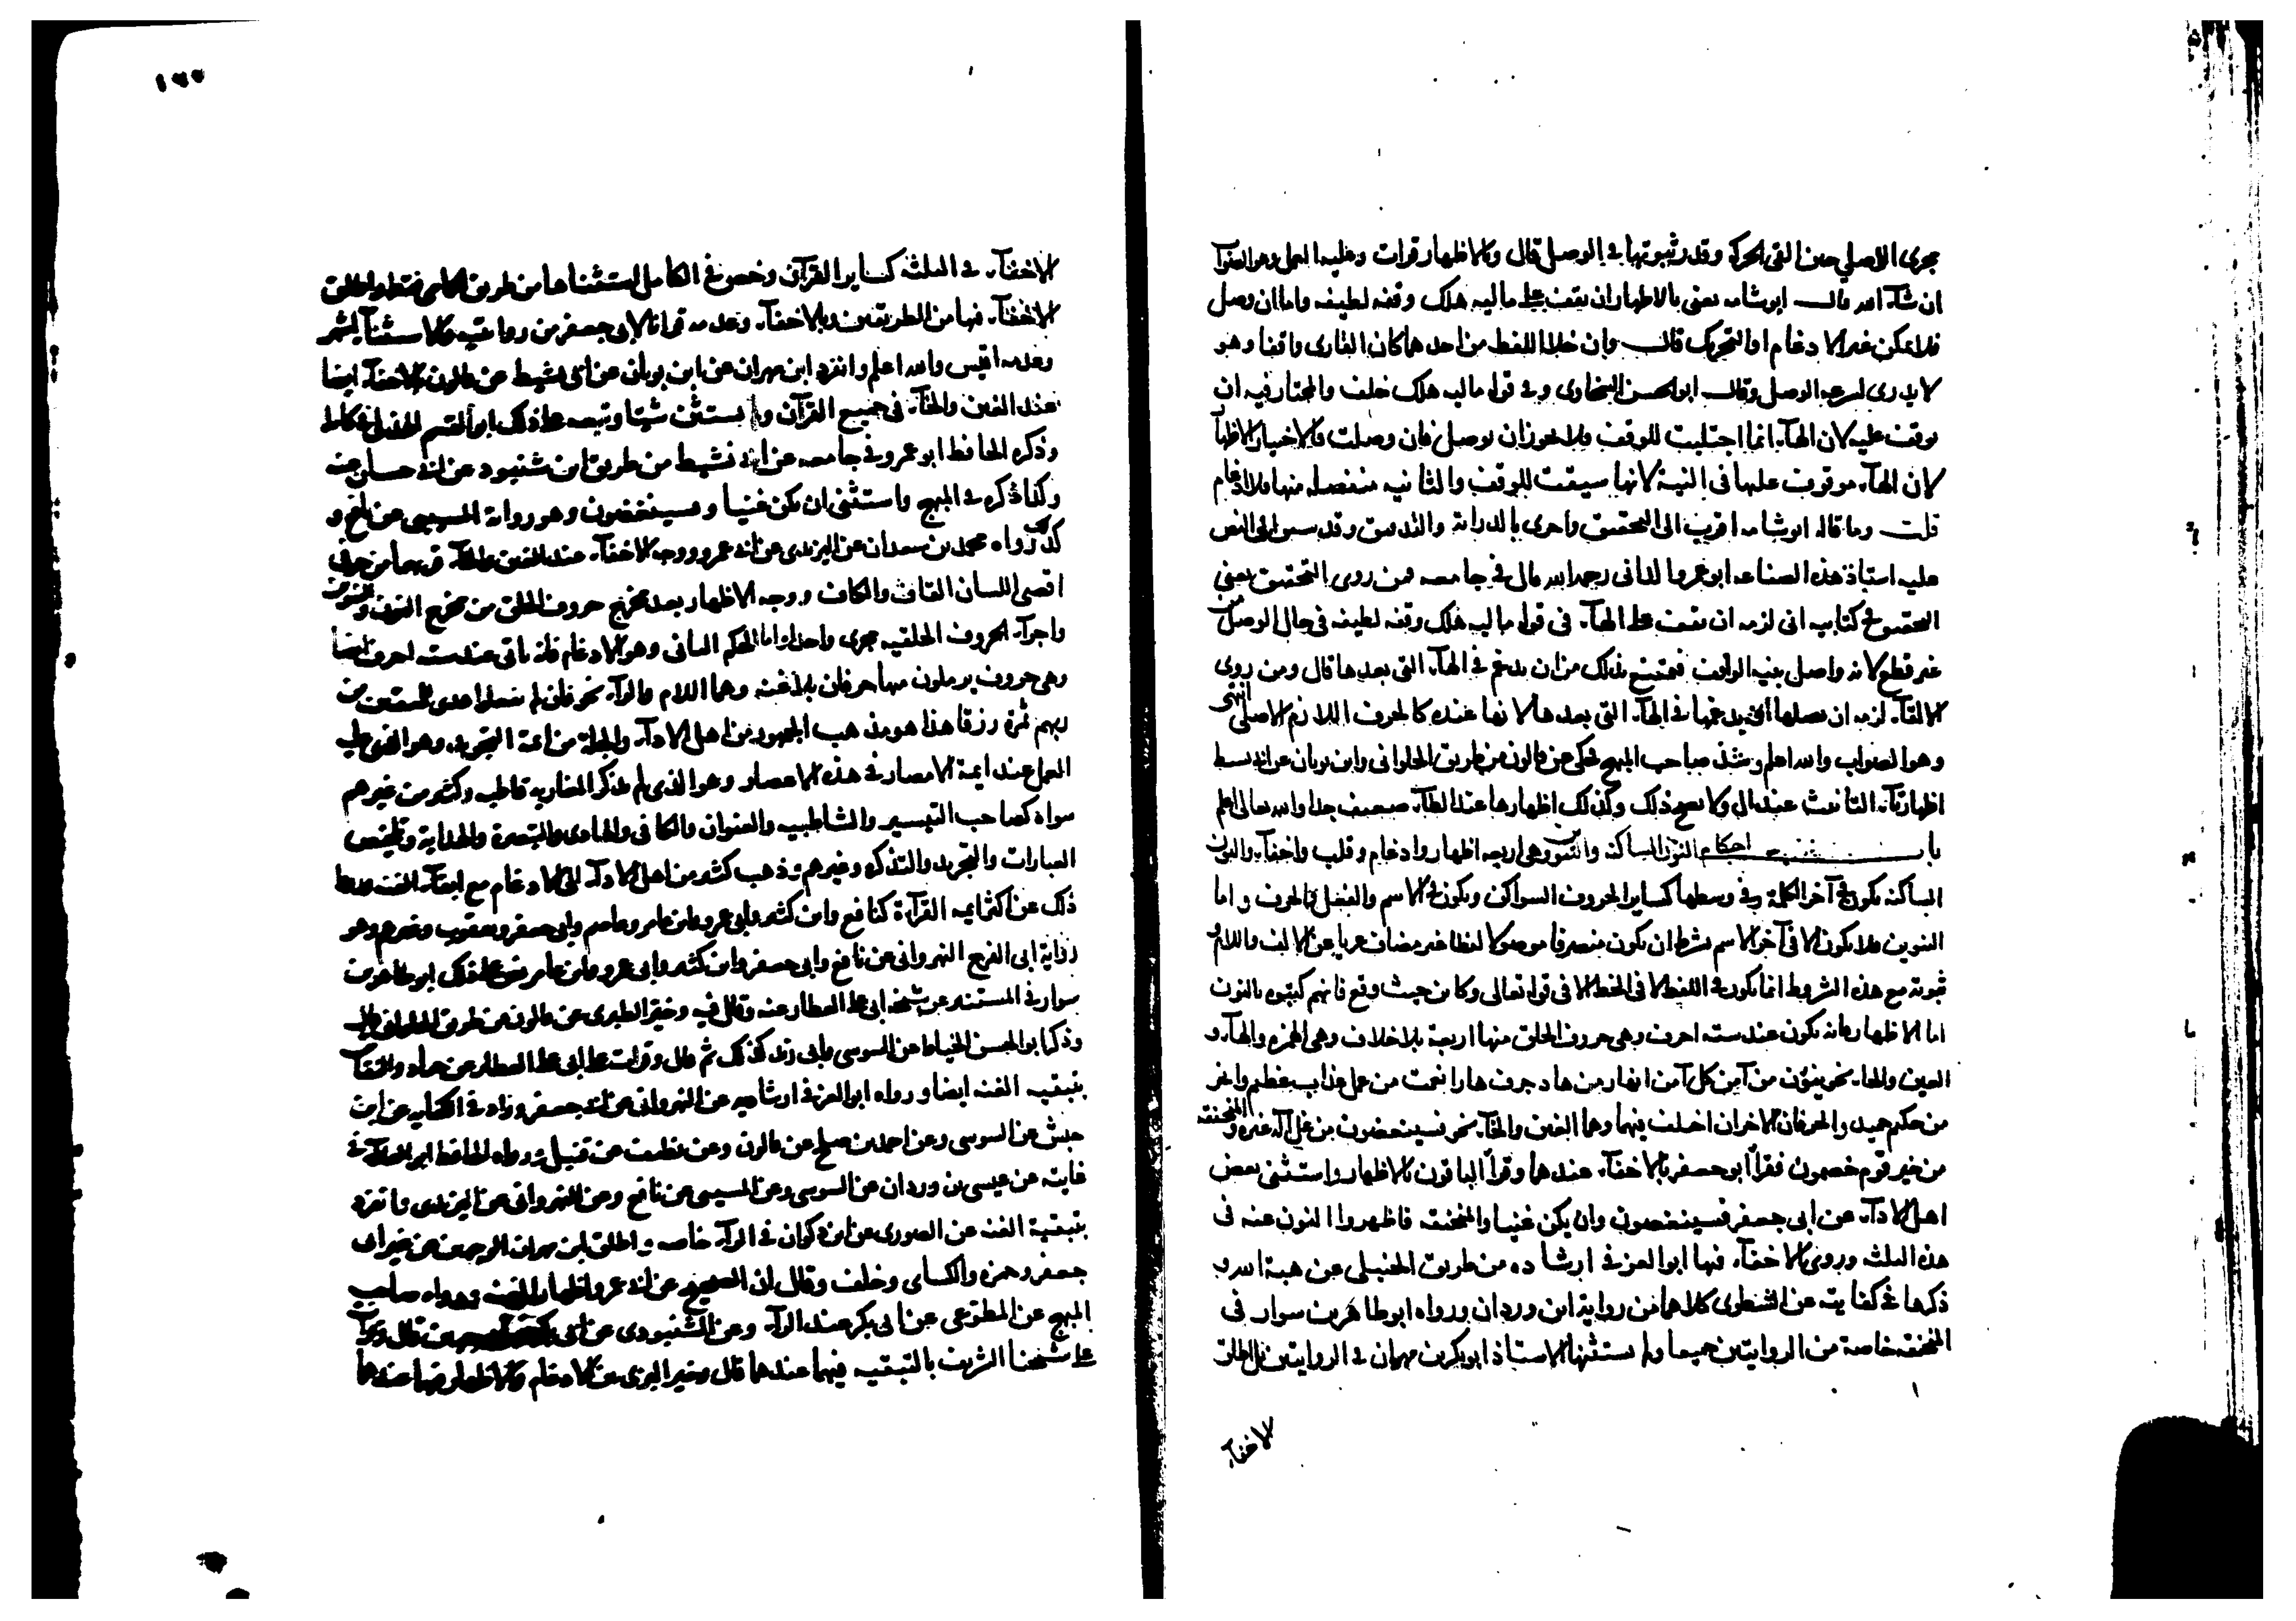 مجرى الاصلي حين القى الحركة وقدر ثبوتها في الوصل قال وبالاظهار قرات وعليه العمل وهو الصواب
ان شآء الله قال ابو شامه يعنى بالاظهار ان يقف على ماليه هلك وقفه لطيفه واما ان وصل
فلا يمكن غير الادغام او التحريك قال وان خلا اللفظ من احدهما كان القارى واقفا وهو
لا يدرى لسرعه الوصل وقال ابو الحسن السخاوى وفي قوله ماليه هلك خلف والمختار فيه ان
يوقف عليه لان الهآء انما اجتلبت للوقف ولا يجوز ان يوصل فان وصلت فالاختيار الاظهار
لان الهآء موقوف عليها في النية لانها سيقت للوقف والثانيه منفصله منها فلا ادغام
قلت وما قاله ابو شامه اقرب الى التحقيق واحرى بالدراية والتدقيق وقد سبق الى النص
عليه استاذ هذه الصناعه ابو عمرو الدانى رحمه الله قال في جامعه فمن روى التحقيق يعنى
التحقيق في كتابيه انى لزمه ان يقف على الهآء في قوله ماليه هلك وقفه لطيفه في حال الوصل من
غير قطع لانه واصل بنية الواقف فيمتنع بذلك من ان يدغم في الهآء التى بعدها قال ومن روى
الالقآء لزمه ان يصلها ويدغمها في الهآء التى بعدها لانها عنده كالحرف اللازم الاصلى انتهى
وهو الصواب والله اعلم وشذ صاحب المبهج فحكى عن قالون من طريق الحلوانى وابن بويان عن ابى نشيط
اظهار تآء التانيث عند الدال ولا يصح ذلك وكذلك اظهارها عند الطآء ضعيف جدا والله تعالى اعلم
باب احكام النون الساكنة والتنوين وهي اربعه اظهار وادغام وقلب واخفآء والنون
الساكنه تكون في آخر الكلمة وفي وسطها كساير الحروف السواكن وتكون في الاسم والفعل والحرف واما
التنوين فلا يكون الا في آخر الاسم بشرط ان يكون منصرفا موصولا لفظا غير مضاف عريا عن الالف واللام و
ثبوته مع هذه الشروط انما يكون في اللفظ لا في الخط الا في قوله تعالى وكاين حيث وقع فانهم كتبوه بالنون
اما الاظهار فانه يكون عند سته احرف وهي حروف الحلق منها اربعة بلا خلاف وهي الهمزه والهآء و
العين والحا نحو ينؤن من آمن كل آمن انهار من هاد جرف هار انعمت من عمل عذاب عظيم وانحر
من حكيم حميد والحرفان الاخران اختلف فيهما وهما الغين والخآء نحو فسينغضون من غل اله غيره والمنخنقة
من خير قوم خصمون فقرأ ابو جعفر بالاخفآء عندهما وقرأ الباقون بالاظهار واستثنى بعض
اهل الادآء عن ابى جعفر فسينغضون وان يكن غنيا والمنخنقه فاظهروا النون عنه في
هذه الثلثه وروى الاخفآء فيها ابو العز في ارشاده من طريق الحنبلى عن هبة الله و
ذكرها في كفايته عن الشطوى كلاهما من رواية ابن وردان ورواه ابو طاهر بن سوار في
المنخنقه خاصة من الروايتين جميعا ولم يستثنها الاستاذ ابو بكر بن مهران في الروايتين بل اطلق
الاخفآء
١٦٠
الاخفآء في الثلثه كساير القرآن وخص في الكامل استثناها من طريق الحمامى فقط واطلق
الاخفآء فيها من الطريقين وبالاخفآء وعدمه قرانا لابى جعفر من روايتيه والاستثنآء اشهر
وعدمه اقيس والله اعلم وانفرد ابن مهران عن ابن بويان عن ابى نشيط عن قالون بالاخفآء ايضا
عند الغين والخآء في جميع القرآن ولم يستثن شيئا وتبعه على ذلك ابو القسم الهذلى في كامله
وذكره الحافظ ابو عمرو في جامعه عن ابى نشيط من طريق ابن شنبوذ عن ابى حسان عنه
وكذا ذكره في المبهج واستثنى ان يكن غنيا وفسينغضون وهو رواية المسيبى عن نافع و
كذلك رواه محمد بن سعدان عن اليزيدى عن ابى عمرو ووجه الاخفآء عند الغين والخآء قربهما من حرفى
اقصى اللسان القاف والكاف ووجه الاظهار بعد مخرج حروف الحلق من مخرج النون والتنوين
واجرآء الحروف الحلقيه مجرى واحدا واما الحكم الثانى وهو الادغام فانه ياتى عند سته احرف ايضا
وهي حروف يرملون منها حرفان بلا غنه وهما اللام والرآء نحو فان لم تفعلوا هدى للمتقين من
ربهم ثمرة رزقا هذا هو مذهب الجمهور من اهل الادآء والجلة من ائمة التجويد وهو الذى عليه
العمل عند ايمة الامصار في هذه الاعصار وهو الذى لم يذكر المغاربه قاطبه وكثير من غيرهم
سواه كصاحب التيسير والشاطبيه والعنوان والكافى والهادى والتبصرة والهداية وتلخيص
العبارات والتجريد والتذكره وغيرهم وذهب كثير من اهل الادآء الى الادغام مع ابقآء الغنه ورووا
ذلك عن اكثر ايمه القرآءة كنافع وابن كثير وابى عمرو وابن عامر وعاصم وابى جعفر ويعقوب وغيرهم وهو
رواية ابى الفرج النهروانى عن نافع وابى جعفر وابن كثير وابى عمرو وابن عامر نص على ذلك ابو طاهر بن
سوار في المستنير عن شيخه ابى على العطار عنه وقال فيه وخير الطبرى عن قالون من طريق الحلوانى قال
وذكر ابو الحسن الخياط عن السوسى وابى زيد كذلك ثم قال وقرات على ابى على العطار عن حماد والنقاش
بتبقيه الغنه ايضا ورواه ابو العز في ارشاديه عن النهروانى عن ابى جعفر وزاد في الكفايه عن ابن
حبش عن السوسى وعن احمد بن صالح عن قالون وعن نظيف عن قنبل ورواه الحافظ ابو العلآء في
غايته عن عيسى بن وردان عن السوسى وعن المسيبى عن نافع وعن النهروانى عن اليزيدى وانفرد
بتبقية الغنه عن الصورى عن ابن ذكوان في الرآء خاصه واطلق ابن مهران الوجهين عن غير ابى
جعفر وحمزه والكسائ وخلف وقال ان الصحيح عن ابى عمرو اظهار الغنه ورواه صاحب
المبهج عن المطوعى عن ابى بكر عند الرآء وعن الشنبوذى عن ابى بكر قال وقرات
على شيخنا الشريف بالتبقيه فيهما عندهما قال وخير البزى بين الادغام والاظهار فيهما عندهما